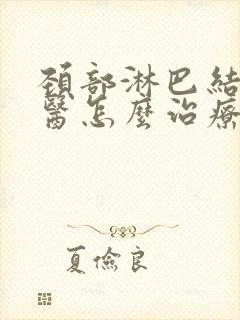 頸部淋巴結
醫怎麼治療
夏儉良